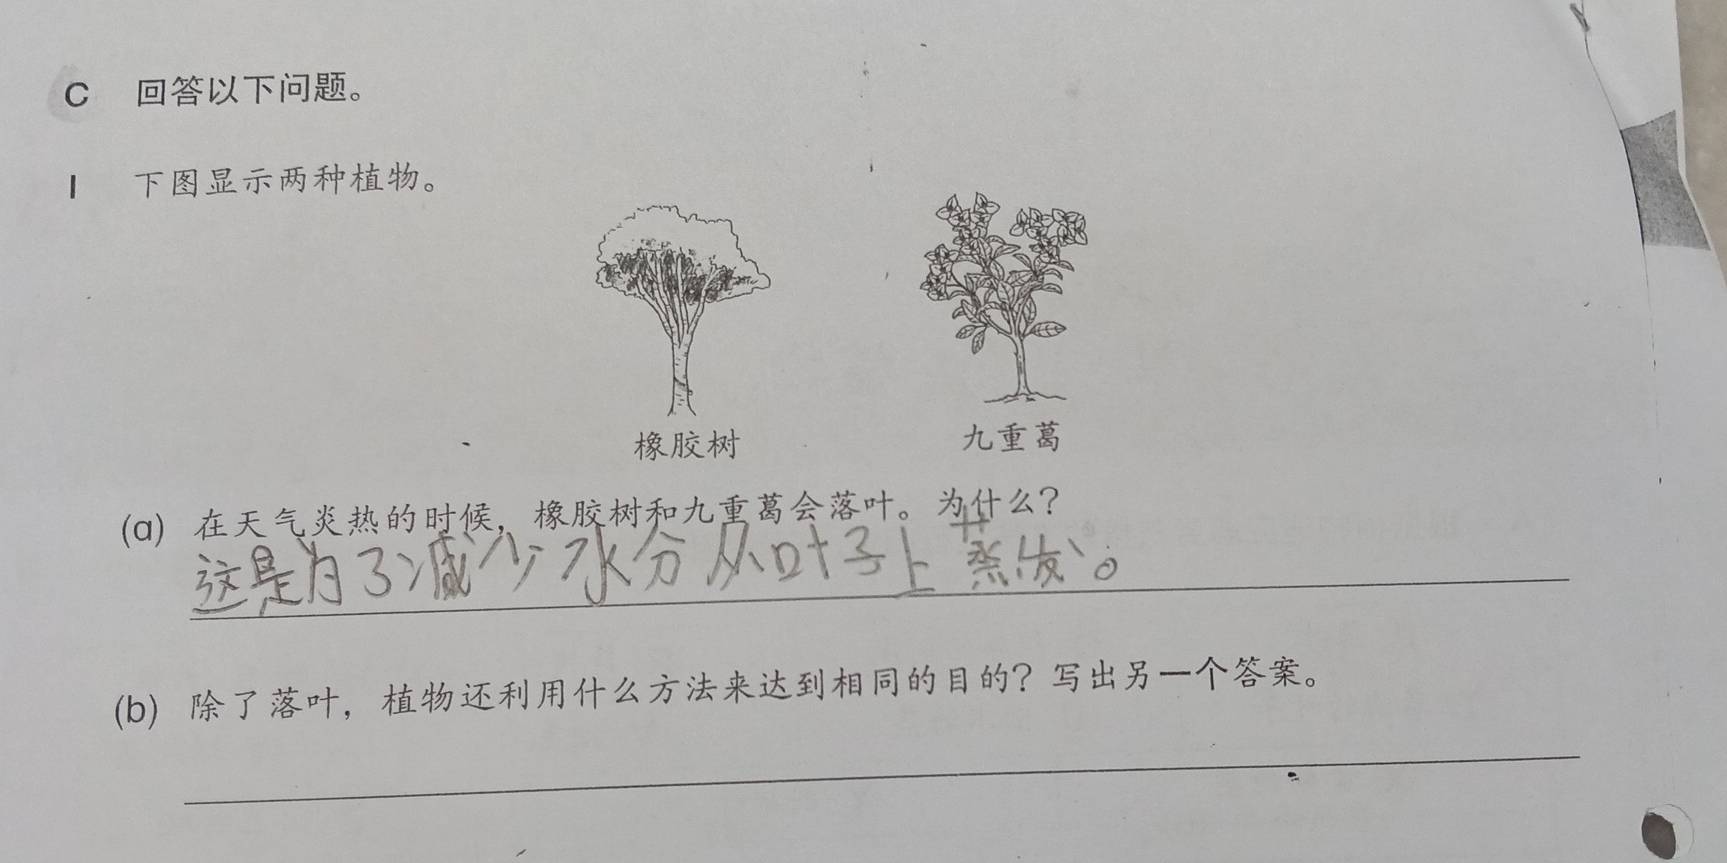 C 回答以下问题。
1 下图显示两种植物。
橡胶树 九重葛
(a) 在天气炎热的时候，橡胶树和九重葛会落叶。为什么？
这是为了减少水分从叶子上蒸发。
(b) 除了落叶，植物还利用什么方法来达到相同的目的？写出另一个答案。